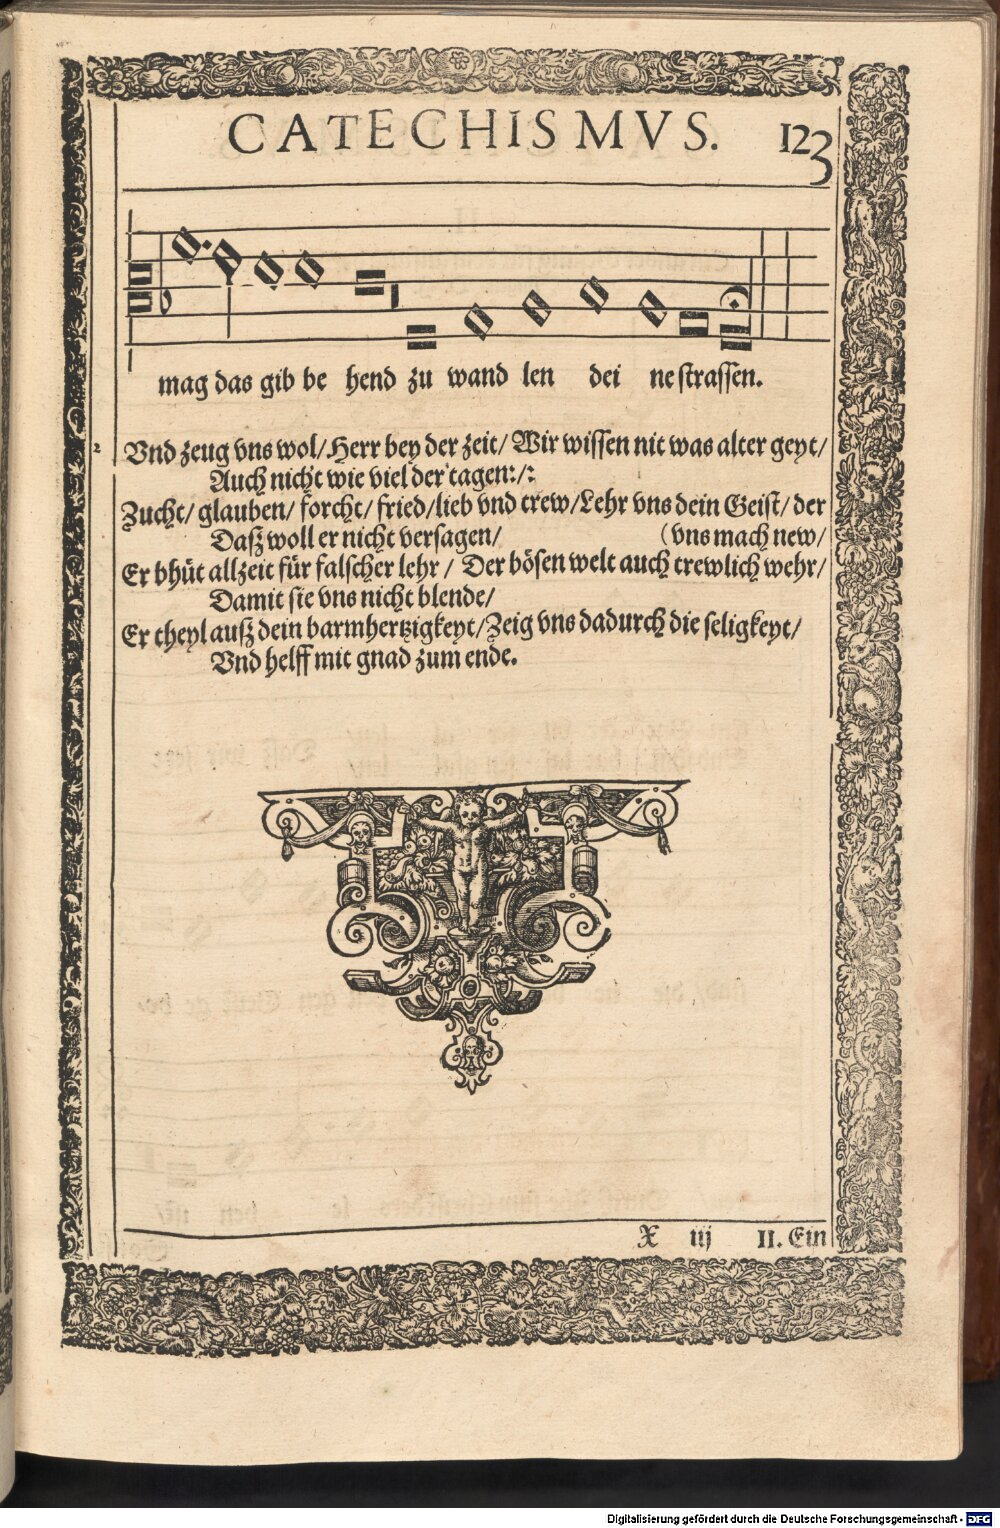 CATECHISMVS. 123
mag das gib be hend zu wand len dei ne strassen.
2 Vnd zeug vns wol/ Herr bey der zeit/ Wir wissen nit was alter geyt/
Auch nicht wie viel der tagen:/:
Zucht/ glauben/ forcht/ fried/ lieb vnd trew/ Lehr vns dein Geist/ der
Daß woll er nicht versagen/ (vns mach new/
Er bhüt allzeit für falscher lehr/ Der bösen welt auch trewlich wehr/
Damit sie vns nicht blende/
Er theyl auß dein barmhertzigkeyt/ Zeig vns dadurch die seligkeyt/
Vnd helff mit gnad zum ende.
X iij II. Ein
Digitalisierung gefördert durch die Deutsche Forschungsgemeinschaft - DFG